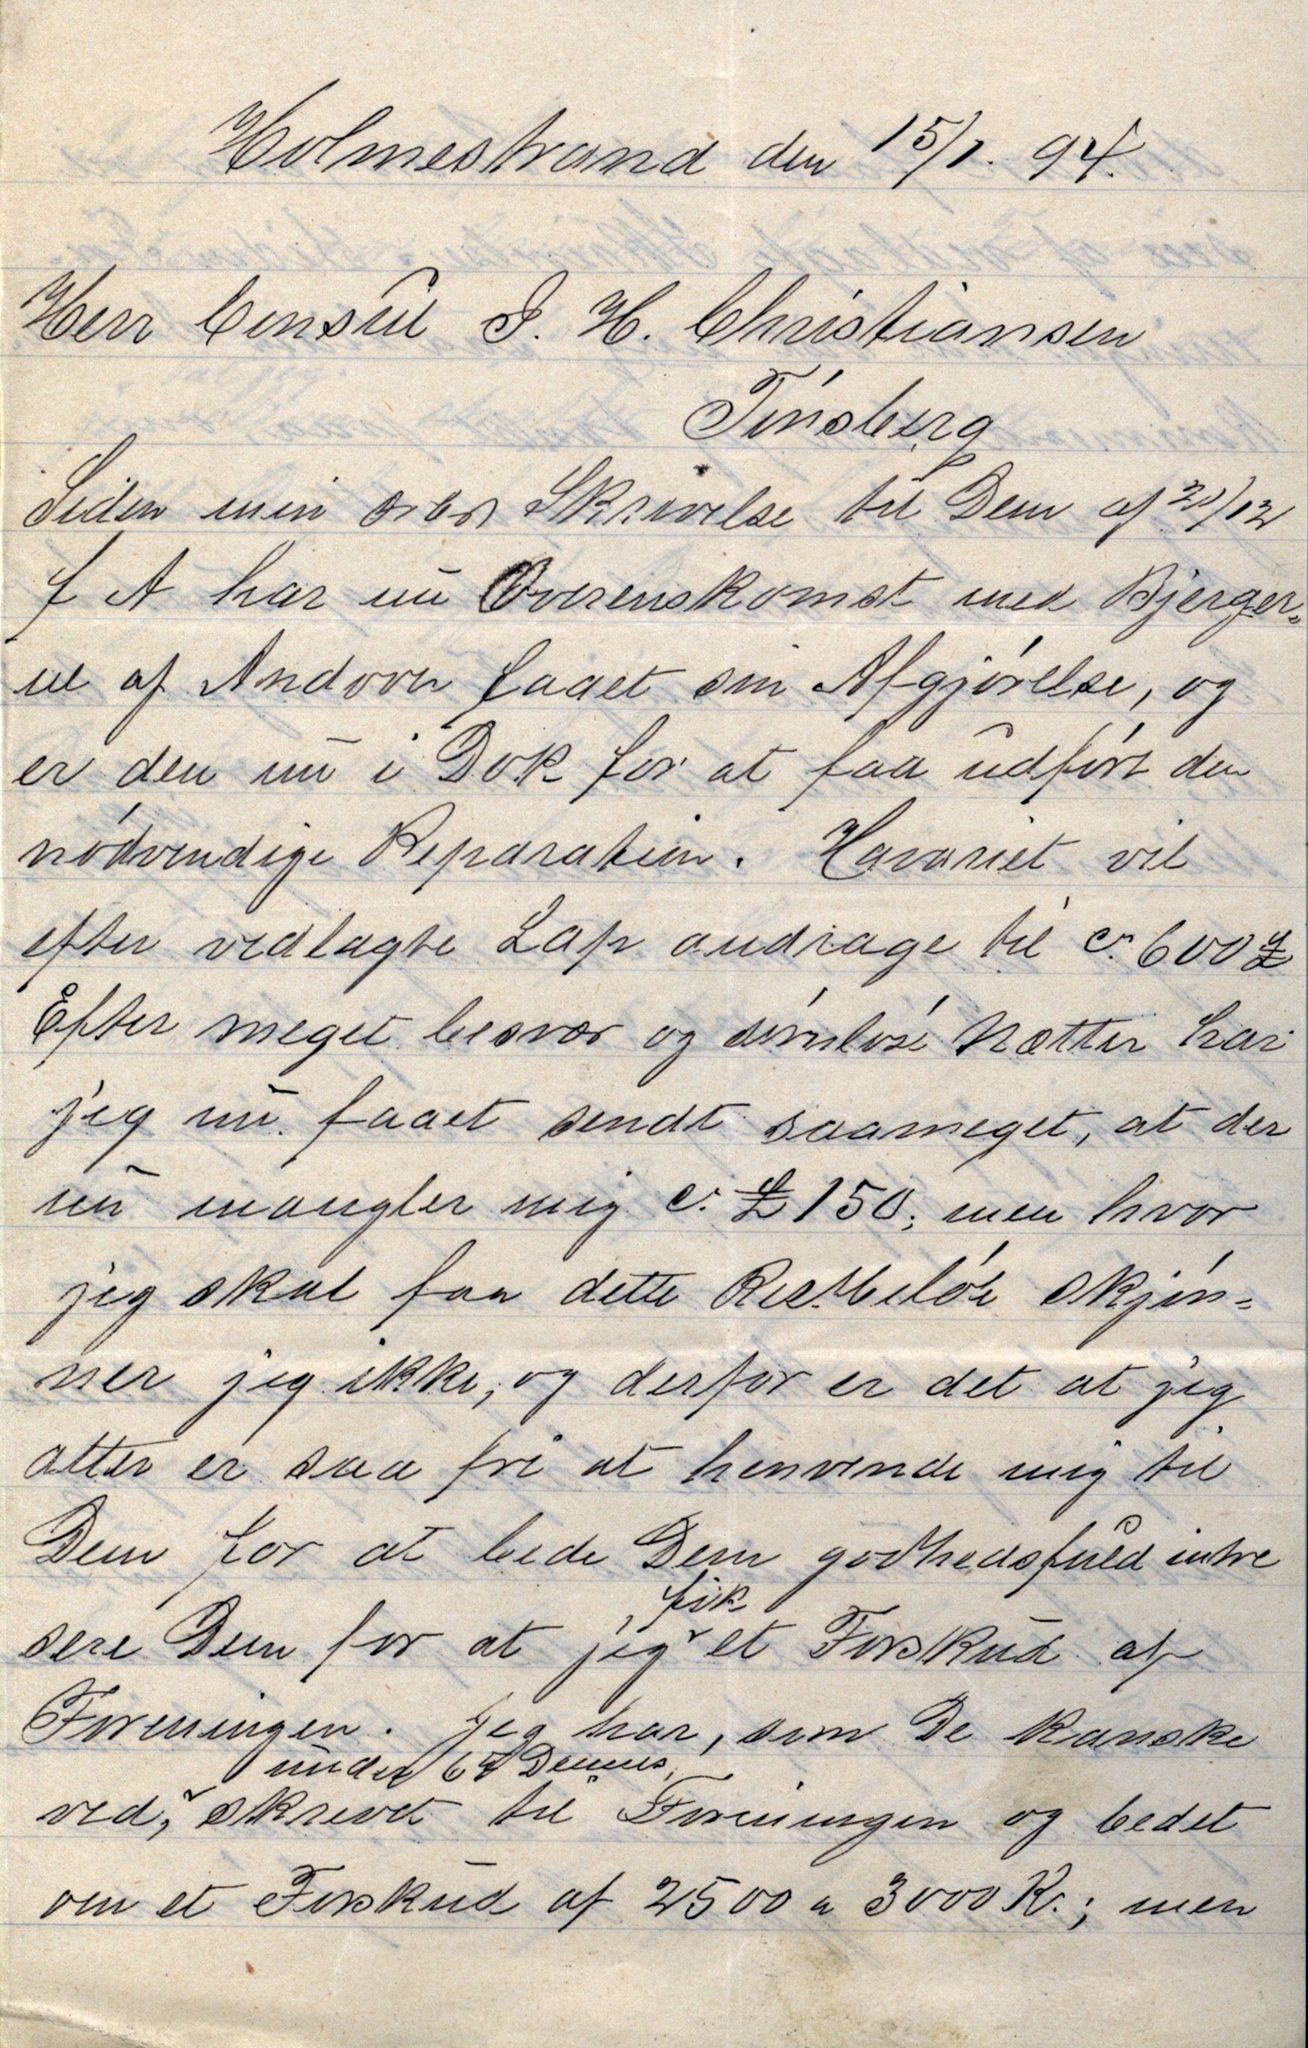 Holmestrand den 15/1. 94.
Herr Consul I. H. Christiansen
Tønsberg
Siden min ærbs Skrivelse til Dem af 20/12
f A har nu Overenskomst med Bjerger-
ne af Andover faaet sin Afgjørelse, og
er den nu i Dok for at faa udført den
nødvendige Reparation. Havariet vil
efter vedlagte Lap andrage til cr. 600 £
Efter meget besvær og sømløse Nætter har
jeg nu faaet sendt saameget, at der
nu mangler mig cr. £ 150; men hvor
jeg skal faa dette Restbeløb skjøn-
ner jeg ikke, og derfor er det at jeg
atter er saa fri at henvende mig til
Dem for at bede Dem godhedsfuld intre
sere Dem for at jeg fik et Forskud af
Foreningen. Jeg har, som De kanske
ved, under 6te Dennes, skrevet til Foreningen og bedet
om et Forskud af 2500 a 3000 Kr.; men